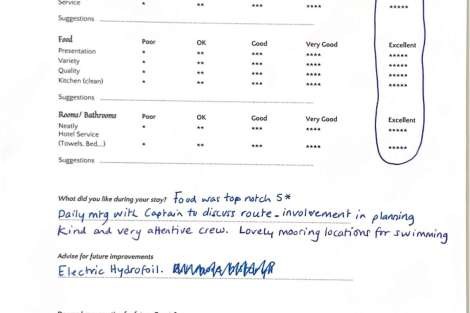 Service * ** *** **** *****
Suggestions
Food Poor OK Good Very Good Excellent
Presentation * ** *** **** ****
Variety * ** *** **** ****
Quality * ** *** **** ****
Kitchen (clean) * ** *** **** ****
Suggestions
Rooms/ Bathrooms Poor OK Good Very Good Excellent
Neatly * ** *** **** *****
Hotel Service
(Towels, Bed...) * ** *** **** *****
Suggestions
What did you like during your stay? Food was top notch 5*
Daily mtg with Captain to discuss route - involvement in planning
Kind and very attentive crew. Lovely mooring locations for swimming
Advise for future improvements
Electric Hydrofoil.